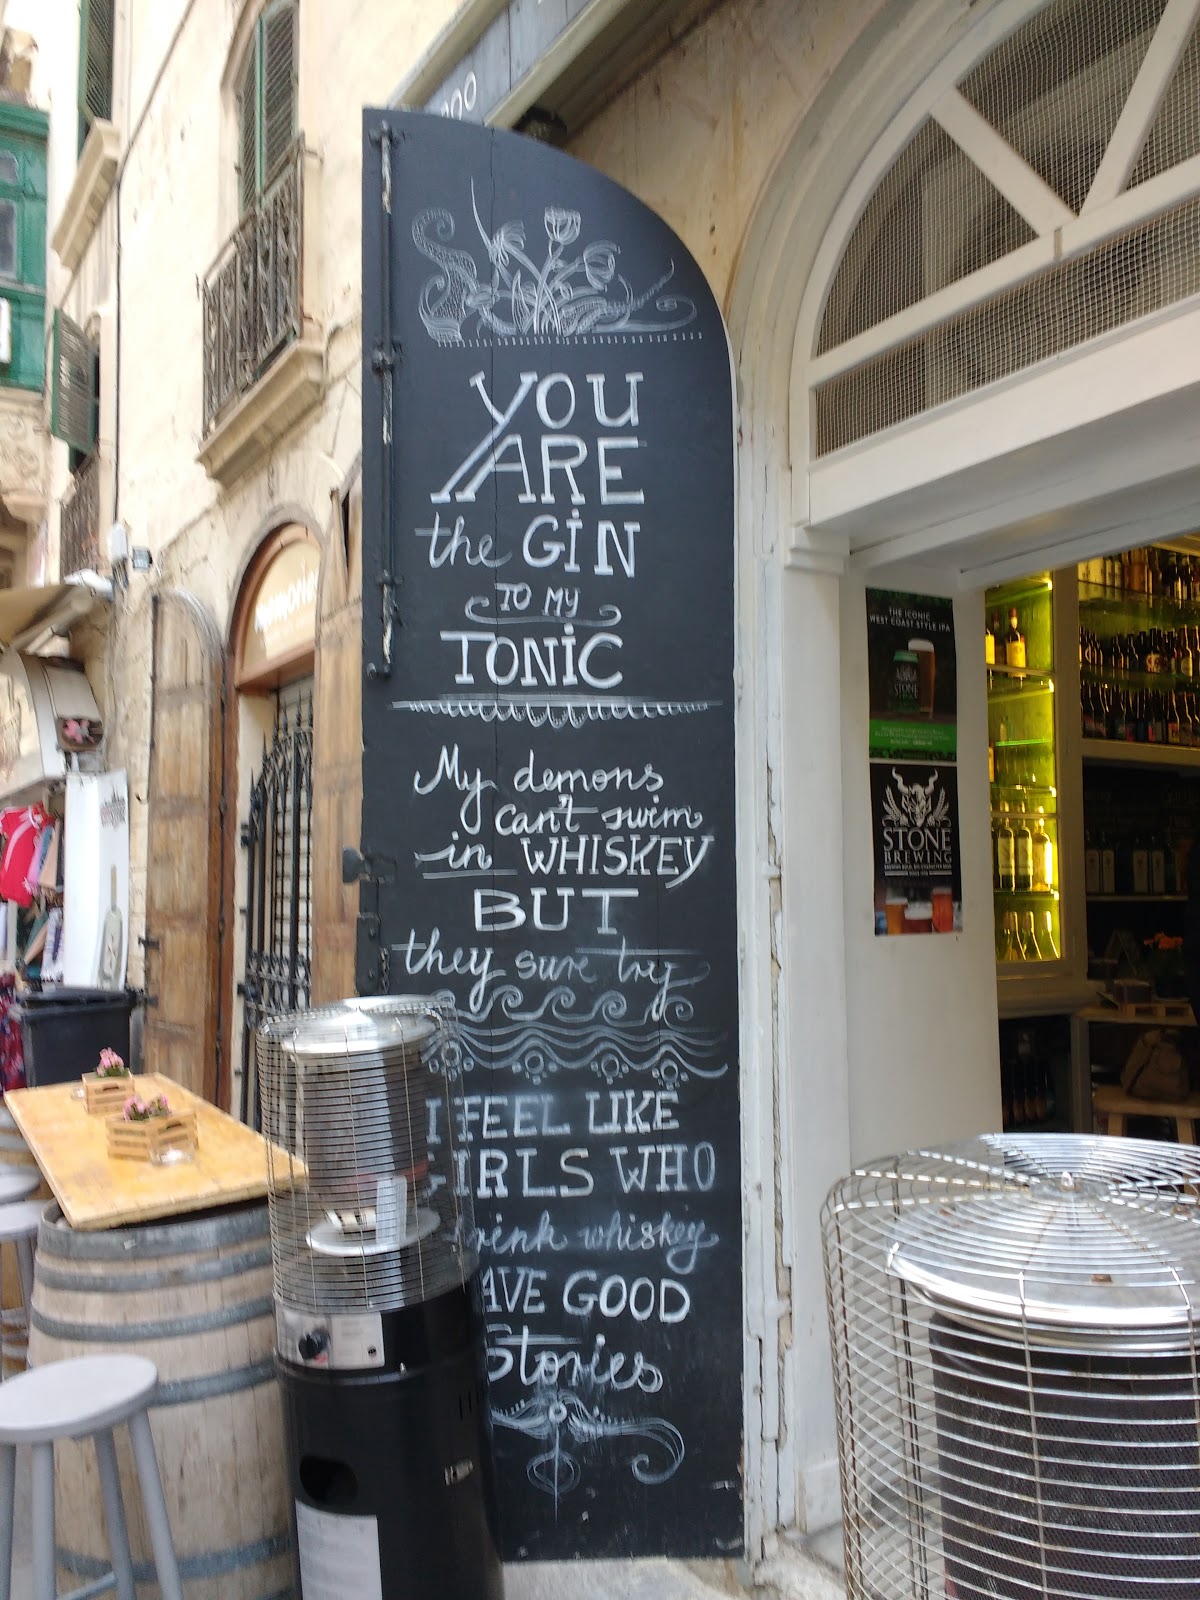 YOU
ARE
the GiN
TO MY
TONiC
My demons
can't swim
in WHISKEY
BUT
they sure try
I FEEL LIKE
GIRLS WHO
drink whiskey
HAVE GOOD
Stories
THE ICONIC
WEST COAST STYLE IPA
STONE
STONE
BREWING